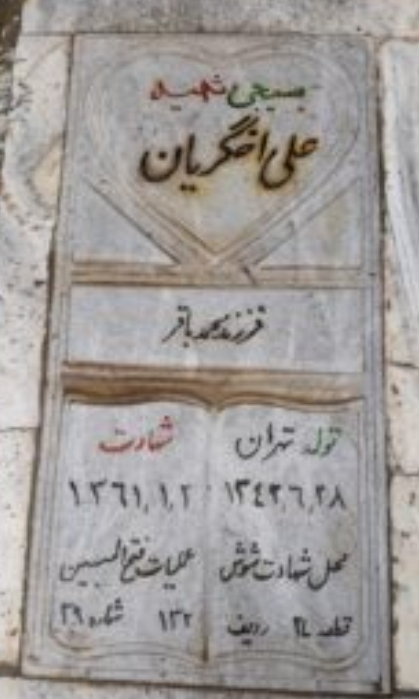 بسیجی شهید
علی اخگریان
فرزند محمد باقر
تولد تهران
۱۳۴۲,۶,۲۸
محل شهادت شوش
قطعه ۲۴ ردیف
شهادت
۱۳۶۱,۱,۲
عملیات فتح المبین
۱۳۲ شماره ۳۹